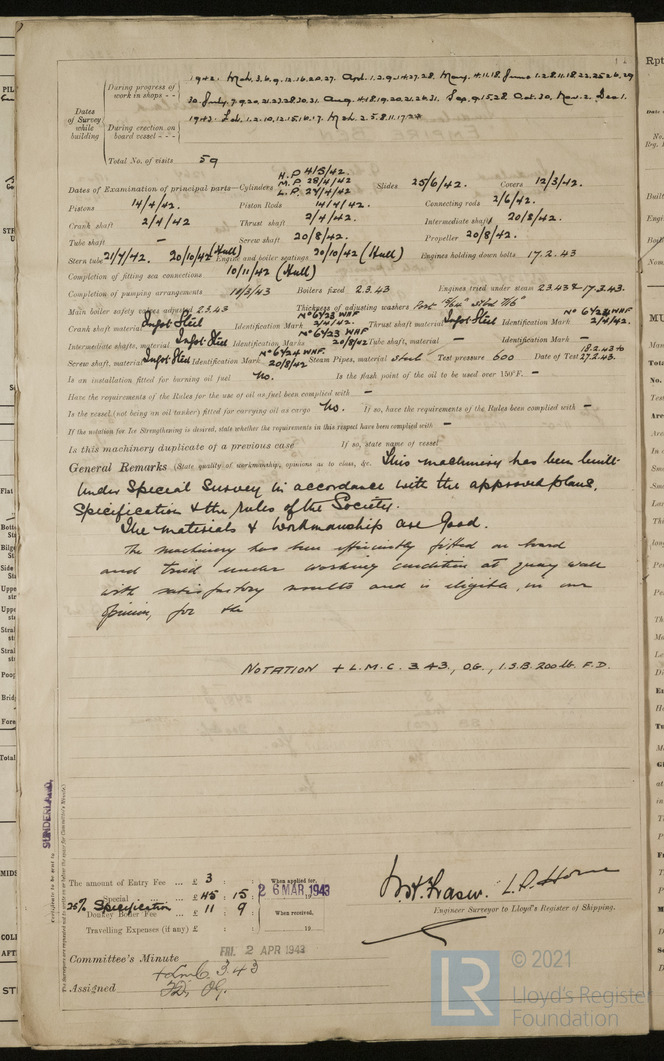 Dates of Survey while building
During progress of work in shops - -
1942. Mch. 3. 6. 9. 12. 16. 20. 27. Apl. 1. 2. 9. 14. 27. 28. May. 4. 11. 18. June 1. 2. 8. 11. 18. 22. 25. 26. 29
30. July. 7. 9. 20. 21. 23. 28. 30. 31. Aug. 4. 18. 19. 20. 21. 26. 31. Sep. 9. 15. 28. Oct. 30. Nov. 2. Dec. 1.
During erection on board vessel - - -
1943. Feb. 1. 2. 10. 12. 15. 16. 17. Mch. 2. 5. 8. 11. 17. 24
Total No. of visits 59
Dates of Examination of principal parts—Cylinders H.P. 4/5/42. M.P. 28/4/42 L.P. 27/4/42 Slides 25/6/42. Covers 12/3/42.
Pistons 14/4/42. Piston Rods 14/4/42. Connecting rods 2/6/42.
Crank shaft 2/4/42 Thrust shaft 2/4/42. Intermediate shaft 20/8/42.
Tube shaft — Screw shaft 20/8/42. Propeller 20/8/42.
Stern tube 21/7/42. Engine and boiler seatings 20/10/42 (Hull) Engines holding down bolts 17.2.43
Completion of fitting sea connections 10/11/42 (Hull)
Completion of pumping arrangements 10/3/43 Boilers fixed 2.3.43 Engines tried under steam 2.3.43 & 17.3.43.
Main boiler safety valves adjusted 2.3.43 Thickness of adjusting washers
Crank shaft material Ingot Steel Identification Mark No 6423 WHF 2/4/42. Thrust shaft material Ingot Steel Identification Mark No 6423 WHF 2/4/42.
Intermediate shafts, material Ingot Steel Identification Marks No 6423 WHF 20/8/42 Tube shaft, material — Identification Mark —
Screw shaft, material Ingot Steel Identification Mark No 6424 WHF. 20/8/42 Steam Pipes, material Steel Test pressure 600 Date of Test 18.2.43 to 27.2.43.
Is an installation fitted for burning oil fuel No. Is the flash point of the oil to be used over 150°F. —
Have the requirements of the Rules for the use of oil as fuel been complied with —
Is the vessel (not being an oil tanker) fitted for carrying oil as cargo No. If so, have the requirements of the Rules been complied with —
If the notation for Ice Strengthening is desired, state whether the requirements in this respect have been complied with —
Is this machinery duplicate of a previous case If so, state name of vessel
General Remarks (State quality of workmanship, opinions as to class, &c. This machinery has been built
under Special Survey in accordance with the approved plans,
Specification & the rules of the Society.
The materials & workmanship are Good.
The machinery has been efficiently fitted on board
and tried under working condition at quay wall
with satisfactory results and is eligible, in our
opinion, for the
NOTATION + L.M.C. 3.43., O.G., 1.S.B. 200 lb. F.D.
SUNDERLAND,
The amount of Entry Fee ... £ 3 : :
Special ... £ 45 : 15 :
25% Specification
Donkey Boiler Fee ... £ 11 : 9 :
Travelling Expenses (if any) £ : :
When applied for,
26 MAR 1943
When received,
19
W.H. Fraser. L.P. Horne
Engineer Surveyor to Lloyd's Register of Shipping.
Committee's Minute FRI. 2 APR 1943
Assigned + LMC 3.43
FD. OG.
LR
© 2021
Lloyd's Register
Foundation